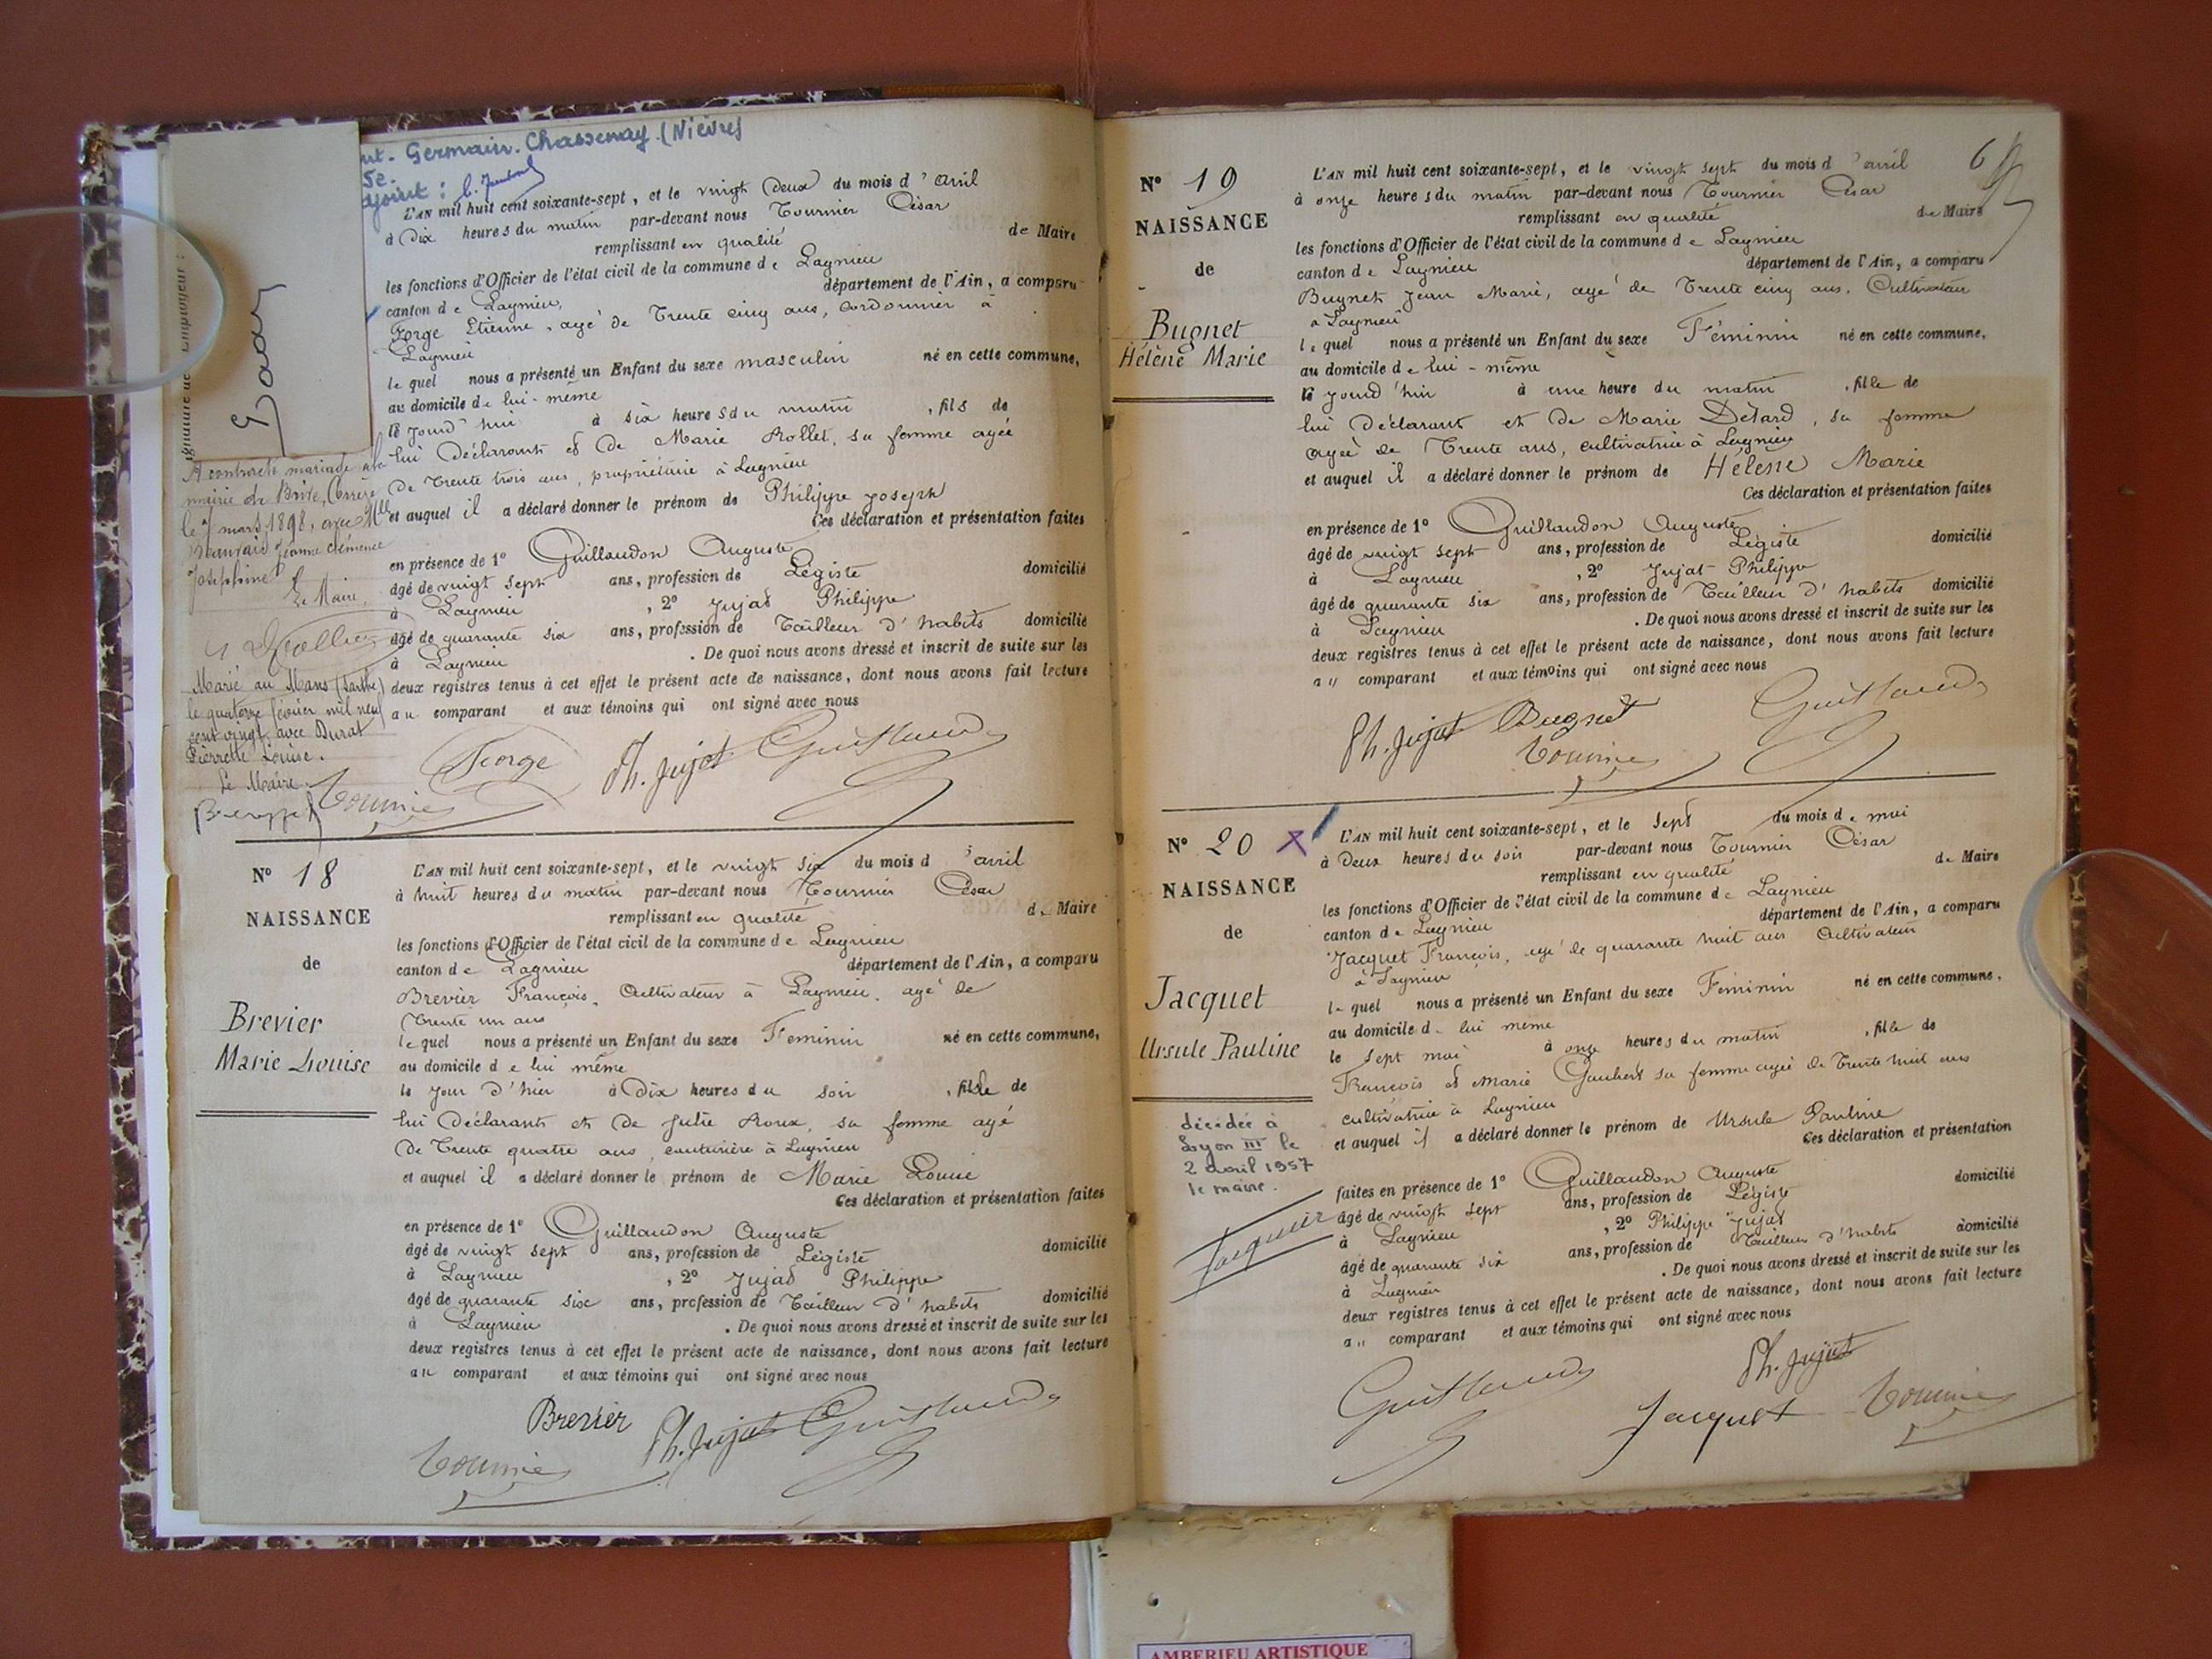 Germain. Chassenay. (Nièvre)
L'AN mil huit cent soixante-sept, et le vingt Deux du mois d'avril
à Dix heures du matin par-devant nous Tournier César
remplissant en qualité de Maire
les fonctions d'Officier de l'état civil de la commune de Lagnieu
canton de Lagnieu, département de l'Ain, a comparu
Forge Etienne, agé de Trente cinq ans, Cordonnier à
Lagnieu
lequel nous a présenté un Enfant du sexe masculin né en cette commune,
au domicile de lui-même
le jourd'hui à six heures du matin, fils de
lui Déclarant et De Marie Rollet, sa femme agée
De Trente trois ans, propriétaire à Lagnieu
et auquel il a déclaré donner le prénom de Philippe Joseph
Ces déclaration et présentation faites
en présence de 1° Guillaudon Auguste
âgé de vingt sept ans, profession de Légiste domicilié
à Lagnieu, 2° Jujat Philippe
âgé de quarante six ans, profession de Tailleur d'habits domicilié
à Lagnieu. De quoi nous avons dressé et inscrit de suite sur les
deux registres tenus à cet effet le présent acte de naissance, dont nous avons fait lecture
au comparant et aux témoins qui ont signé avec nous
Forge Ph. Jujat
A contracté mariage
mairie de Brive, Corrèze
le 7 mars 1898, avec Mlle
Jeanne Clémence
Joséphine
Le Maire,
Marié au Mans (Sarthe)
le quatorze février mil neuf
cent vingt avec Durat
Pierrette Louise.
Le Maire.
N° 18
NAISSANCE
de
Brevier
Marie Louise
L'AN mil huit cent soixante-sept, et le vingt six du mois d'avril
à huit heures du matin par-devant nous Tournier César
remplissant en qualité de Maire
les fonctions d'Officier de l'état civil de la commune de Lagnieu
canton de Lagnieu département de l'Ain, a comparu
Brevier François, Cultivateur à Lagnieu, agé de
Trente un ans
lequel nous a présenté un Enfant du sexe Feminin né en cette commune,
au domicile de lui même
le jour d'hier à Dix heures du soir, fille de
lui Déclarant et De Julie Roux, sa femme agé
De Trente quatre ans, couturière à Lagnieu
et auquel il a déclaré donner le prénom de Marie Louise
Ces déclaration et présentation faites
en présence de 1° Guillaudon Auguste
âgé de vingt sept ans, profession de Légiste domicilié
à Lagnieu, 2° Jujat Philippe
âgé de quarante six ans, profession de Tailleur d'habits domicilié
à Lagnieu. De quoi nous avons dressé et inscrit de suite sur les
deux registres tenus à cet effet le présent acte de naissance, dont nous avons fait lecture
au comparant et aux témoins qui ont signé avec nous
Brevier Ph. Jujat
N° 19
NAISSANCE
de
Bugnet
Hélène Marie
6
L'AN mil huit cent soixante-sept, et le vingt sept du mois d'avril
à onze heures du matin par-devant nous Tournier César
remplissant en qualité de Maire
les fonctions d'Officier de l'état civil de la commune de Lagnieu
canton de Lagnieu département de l'Ain, a comparu
Bugnet Jean Marie, agé de Trente cinq ans, Cultivateur
à Lagnieu
lequel nous a présenté un Enfant du sexe Féminin né en cette commune,
au domicile de lui-même
le jourd'hui à une heure du matin, fille de
lui Déclarant et De Marie Détard, sa femme
agée de Trente ans, cultivatrice à Lagnieu
et auquel il a déclaré donner le prénom de Hélène Marie
Ces déclaration et présentation faites
en présence de 1° Guillaudon Auguste
âgé de vingt sept ans, profession de Légiste domicilié
à Lagnieu, 2° Jujat Philippe
âgé de quarante six ans, profession de Tailleur d'habits domicilié
à Lagnieu. De quoi nous avons dressé et inscrit de suite sur les
deux registres tenus à cet effet le présent acte de naissance, dont nous avons fait lecture
au comparant et aux témoins qui ont signé avec nous
Ph. Jujat Bugnet
N° 20 X
NAISSANCE
de
Jacquet
Ursule Pauline
décédée à
Lyon III le
2 avril 1957
le maire.
L'AN mil huit cent soixante-sept, et le sept du mois de mai
à Deux heures du soir par-devant nous Tournier César
remplissant en qualité de Maire
les fonctions d'Officier de l'état civil de la commune de Lagnieu
canton de Lagnieu département de l'Ain, a comparu
Jacquet François, agé de quarante huit ans Cultivateur
à Lagnieu
lequel nous a présenté un Enfant du sexe Féminin né en cette commune,
au domicile de lui même
le sept mai à onze heures du matin, fille de
François et Marie Gaubert sa femme agée de Trente huit ans
cultivatrice à Lagnieu
et auquel il a déclaré donner le prénom de Ursule Pauline
Ces déclaration et présentation
faites en présence de 1° Guillaudon Auguste
âgé de vingt sept ans, profession de Légiste domicilié
à Lagnieu, 2° Philippe Jujat
âgé de quarante six ans, profession de Tailleur d'habits domicilié
à Lagnieu. De quoi nous avons dressé et inscrit de suite sur les
deux registres tenus à cet effet le présent acte de naissance, dont nous avons fait lecture
au comparant et aux témoins qui ont signé avec nous
Ph. Jujat
Jacquet
AMBERIEU ARTISTIQUE